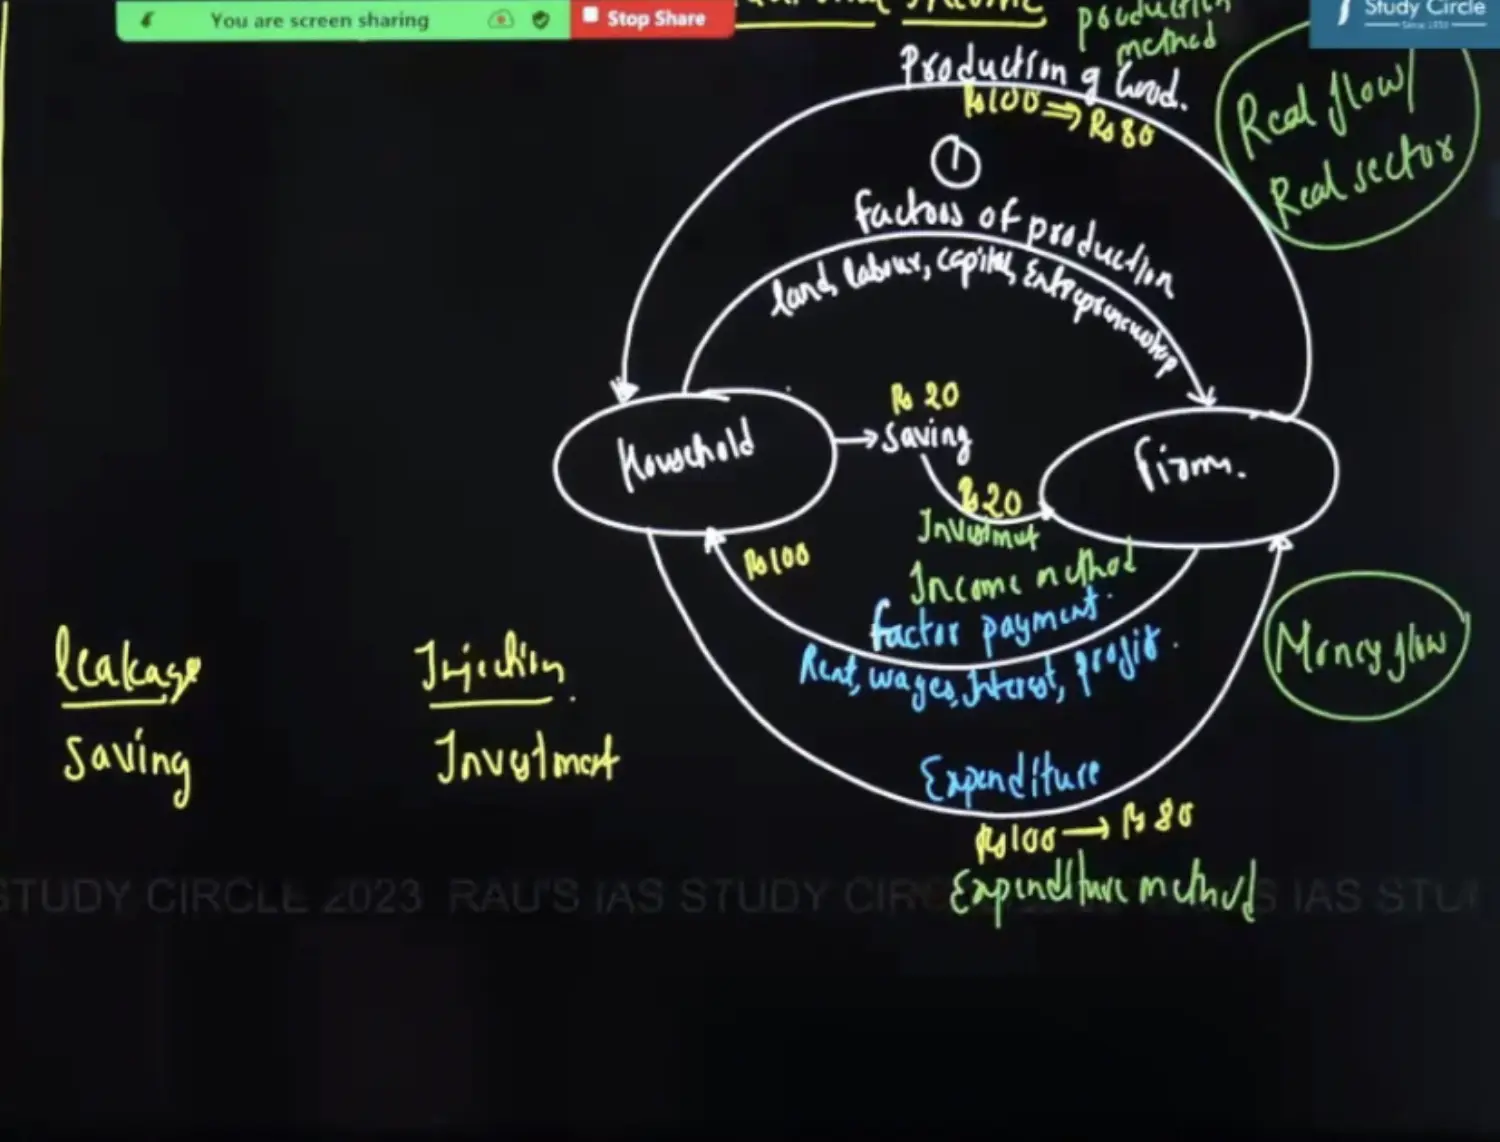 You are screen sharing
Stop Share
Study Circle
National Income
production
method
Production of Good.
Rs100 ⇒ Rs 80
Real flow/
Real sector
1
factors of production
land, labour, capital, Entrepreneurship
Rs 20
Household
→ Saving
Firm.
Rs 20
Investment
Rs100
Income method
factor payment.
Rent, wages, Interest, profit.
Money flow
leakage
Injection.
Saving
Investment
Expenditure
Rs100 → Rs 80
Expenditure method
STUDY CIRCLE 2023 RAU'S IAS STUDY CIRC
S IAS STU